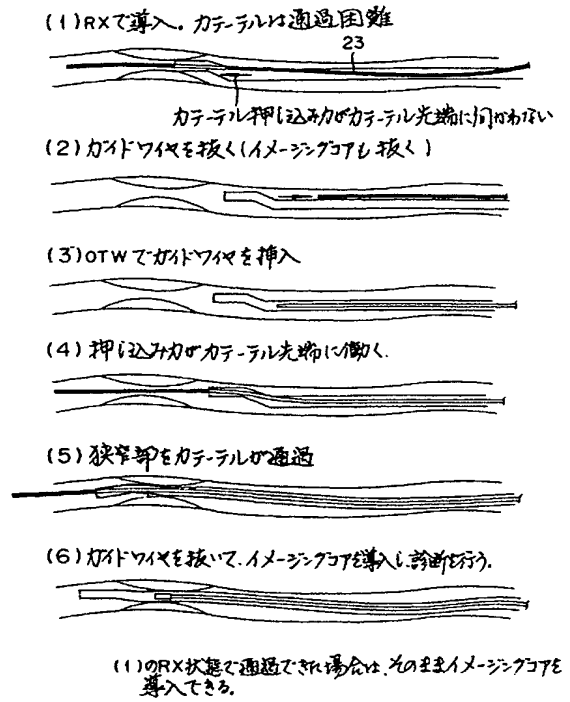 (1)RXで導入。カテーテルは通過困難
23
カテーテル押し込み力がカテーテル先端に向かわない
(2)ガイドワイヤを抜く(イメージングコアも抜く)
(3)OTWでガイドワイヤを挿入
(4)押し込み力がカテーテル先端に働く.
(5)狭窄部をカテーテルが通過
(6)ガイドワイヤを抜いて、イメージングコアを導入し、診断を行う.
(1)のRX状態で通過できた場合は、そのままイメージングコアを
導入できる。